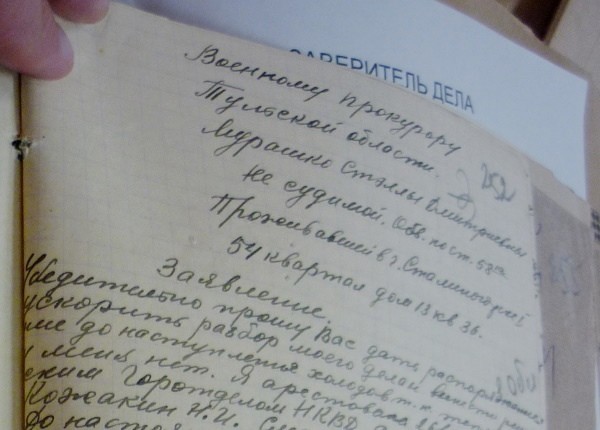 ЗАВЕРИТЕЛЬ ДЕЛА
Военному прокурору
Тульской области.
Мурашко Стэллы Дмитриевны
252
Не судимой. Обв. по ст. 58
Проживавшей в г. Сталиногорск
54 квартал дом 13 кв 36.
Заявление.
Убедительно прошу Вас дать распоряжение
ускорить разбор моего дела
до наступления холодов т. к.
у меня нет. Я арестована
Горотделом НКВД
Кожакин Н.И.
До